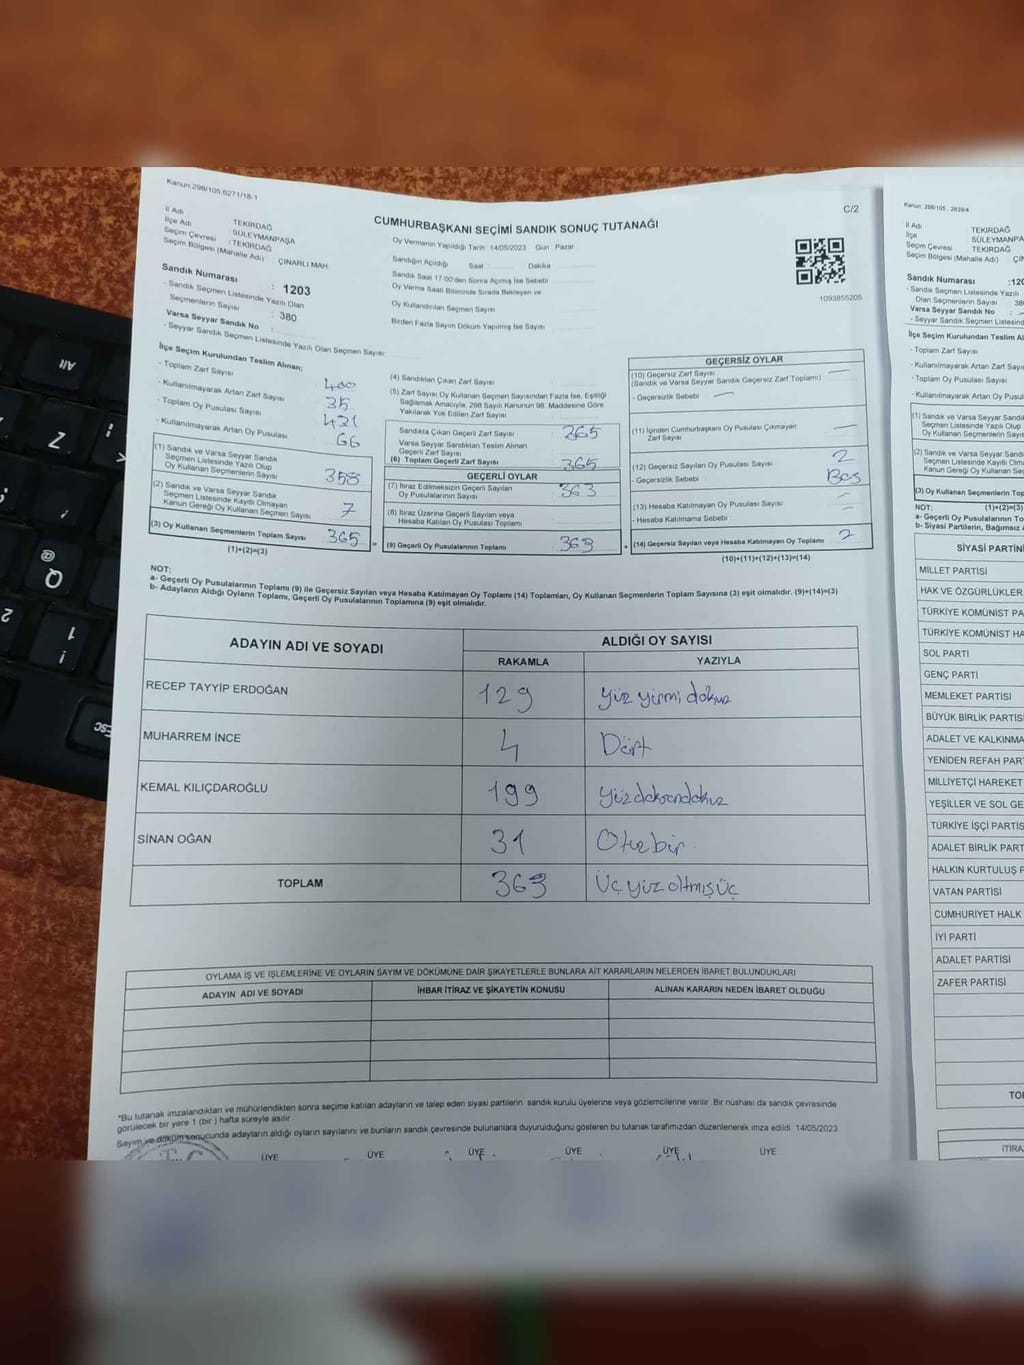 Kanun:298/105,6271/18-1
C/2
CUMHURBAŞKANI SEÇİMİ SANDIK SONUÇ TUTANAĞI
İl Adı : TEKİRDAĞ
İlçe Adı : SÜLEYMANPAŞA
Seçim Çevresi : TEKİRDAĞ
Seçim Bölgesi (Mahalle Adı) : ÇINARLI MAH.
Sandık Numarası : 1203
- Sandık Seçmen Listesinde Yazılı Olan
Seçmenlerin Sayısı : 380
Varsa Seyyar Sandık No :
- Seyyar Sandık Seçmen Listesinde Yazılı Olan Seçmen Sayısı
Oy Vermenin Yapıldığı Tarih 14/05/2023 Gün Pazar
Sandığın Açıldığı Saat Dakika
Sandık Saat 17:00'den Sonra Açılmış İse Sebebi
Oy Verme Saati Bitiminde Sırada Bekleyen ve
Oy Kullandırılan Seçmen Sayısı
Birden Fazla Sayım Döküm Yapılmış İse Sayısı
1093855205
İlçe Seçim Kurulundan Teslim Alınan;
- Toplam Zarf Sayısı 400
- Kullanılmayarak Artan Zarf Sayısı 35
- Toplam Oy Pusulası Sayısı 431
- Kullanılmayarak Artan Oy Pusulası 66
(1) Sandık ve Varsa Seyyar Sandık
Seçmen Listesinde Yazılı Olup
Oy Kullanan Seçmenlerin Sayısı 358
(2) Sandık ve Varsa Seyyar Sandık
Seçmen Listesinde Kayıtlı Olmayan
Kanun Gereği Oy Kullanan Seçmen Sayısı 7
(3) Oy Kullanan Seçmenlerin Toplam Sayısı 365
(1)+(2)=(3)
(4) Sandıktan Çıkan Zarf Sayısı
(5) Zarf Sayısı Oy Kullanan Seçmen Sayısından Fazla İse, Eşitliği
Sağlamak Amacıyla, 298 Sayılı Kanunun 98. Maddesine Göre
Yakılarak Yok Edilen Zarf Sayısı
Sandıkta Çıkan Geçerli Zarf Sayısı 365
Varsa Seyyar Sandıktan Teslim Alınan
Geçerli Zarf Sayısı
(6) Toplam Geçerli Zarf Sayısı 365
GEÇERLİ OYLAR
(7) İtiraz Edilmeksizin Geçerli Sayılan
Oy Pusulalarının Sayısı 363
(8) İtiraz Üzerine Geçerli Sayılan veya
Hesaba Katılan Oy Pusulası Toplamı
= (9) Geçerli Oy Pusulalarının Toplamı 363 +
GEÇERSİZ OYLAR
(10) Geçersiz Zarf Sayısı —
(Sandık ve Varsa Seyyar Sandık Geçersiz Zarf Toplamı)
- Geçersizlik Sebebi —
(11) İçinden Cumhurbaşkanı Oy Pusulası Çıkmayan
Zarf Sayısı —
(12) Geçersiz Sayılan Oy Pusulası Sayısı 2
- Geçersizlik Sebebi Boş
(13) Hesaba Katılmayan Oy Pusulası Sayısı —
- Hesaba Katılmama Sebebi —
(14) Geçersiz Sayılan veya Hesaba Katılmayan Oy Toplamı 2
(10)+(11)+(12)+(13)=(14)
NOT:
a- Geçerli Oy Pusulalarının Toplamı (9) ile Geçersiz Sayılan veya Hesaba Katılmayan Oy Toplamı (14) Toplamları, Oy Kullanan Seçmenlerin Toplam Sayısına (3) eşit olmalıdır. (9)+(14)=(3)
b- Adayların Aldığı Oyların Toplamı, Geçerli Oy Pusulalarının Toplamına (9) eşit olmalıdır.
ADAYIN ADI VE SOYADI ALDIĞI OY SAYISI
RAKAMLA YAZIYLA
RECEP TAYYİP ERDOĞAN 129 yüz yirmi dokuz
MUHARREM İNCE 4 Dört
KEMAL KILIÇDAROĞLU 199 yüzdoksandokuz
SİNAN OĞAN 31 Otuzbir
TOPLAM 363 Üç yüz altmış üç
OYLAMA İŞ VE İŞLEMLERİNE VE OYLARIN SAYIM VE DÖKÜMÜNE DAİR ŞİKAYETLERLE BUNLARA AİT KARARLARIN NELERDEN İBARET BULUNDUKLARI
ADAYIN ADI VE SOYADI İHBAR İTİRAZ VE ŞİKAYETİN KONUSU ALINAN KARARIN NEDEN İBARET OLDUĞU
*Bu tutanak imzalandıktan ve mühürlendikten sonra seçime katılan adayların ve talep eden siyasi partilerin sandık kurulu üyelerine veya gözlemcilerine verilir. Bir nüshası da sandık çevresinde
görülecek bir yere 1 (bir) hafta süreyle asılır.
Sayım ve döküm sonucunda adayların aldığı oyların sayılarını ve bunların sandık çevresinde bulunanlara duyurulduğunu gösteren bu tutanak tarafımızdan düzenlenerek imza edildi. 14/05/2023
T.C.
ÜYE ÜYE ÜYE ÜYE ÜYE ÜYE
Kanun: 298/105 , 2839/4
İl Adı : TEKİRDAĞ
İlçe : SÜLEYMANPAŞA
Seçim Çevresi : TEKİRDAĞ
Seçim Bölgesi (Mahalle Adı)
Sandık Numarası : 1203
- Sandık Seçmen Listesinde Yazılı
Olan Seçmenlerin Sayısı
Varsa Seyyar Sandık No :
- Seyyar Sandık Seçmen Listesinde
İlçe Seçim Kurulundan Teslim
- Toplam Zarf Sayısı
- Kullanılmayarak Artan Zarf Sayısı
- Toplam Oy Pusulası Sayısı
- Kullanılmayarak Artan Oy Pusulası
(1) Sandık ve Varsa Seyyar Sandık
Seçmen Listesinde Yazılı Olup
Oy Kullanan Seçmenlerin
(2) Sandık ve Varsa Seyyar
Seçmen Listesinde Kayıtlı
Kanun Gereği Oy Kullanan
(3) Oy Kullanan Seçmenlerin
NOT: (1)+(2)=(3)
a- Geçerli Oy Pusulalarının
b- Siyasi Partilerin, Bağımsız
SİYASİ PARTİNİ
MİLLET PARTİSİ
HAK VE ÖZGÜRLÜKLER
TÜRKİYE KOMÜNİST PA
TÜRKİYE KOMÜNİST HA
SOL PARTİ
GENÇ PARTİ
MEMLEKET PARTİSİ
BÜYÜK BİRLİK PARTİS
ADALET VE KALKINMA
YENİDEN REFAH PAR
MİLLİYETÇİ HAREKET
YEŞİLLER VE SOL GE
TÜRKİYE İŞÇİ PARTİS
ADALET BİRLİK PART
HALKIN KURTULUŞ P
VATAN PARTİSİ
CUMHURİYET HALK
İYİ PARTİ
ADALET PARTİSİ
ZAFER PARTİSİ
TO
İTİRA
Alt
Z
Q
@
1
!
2
ESC